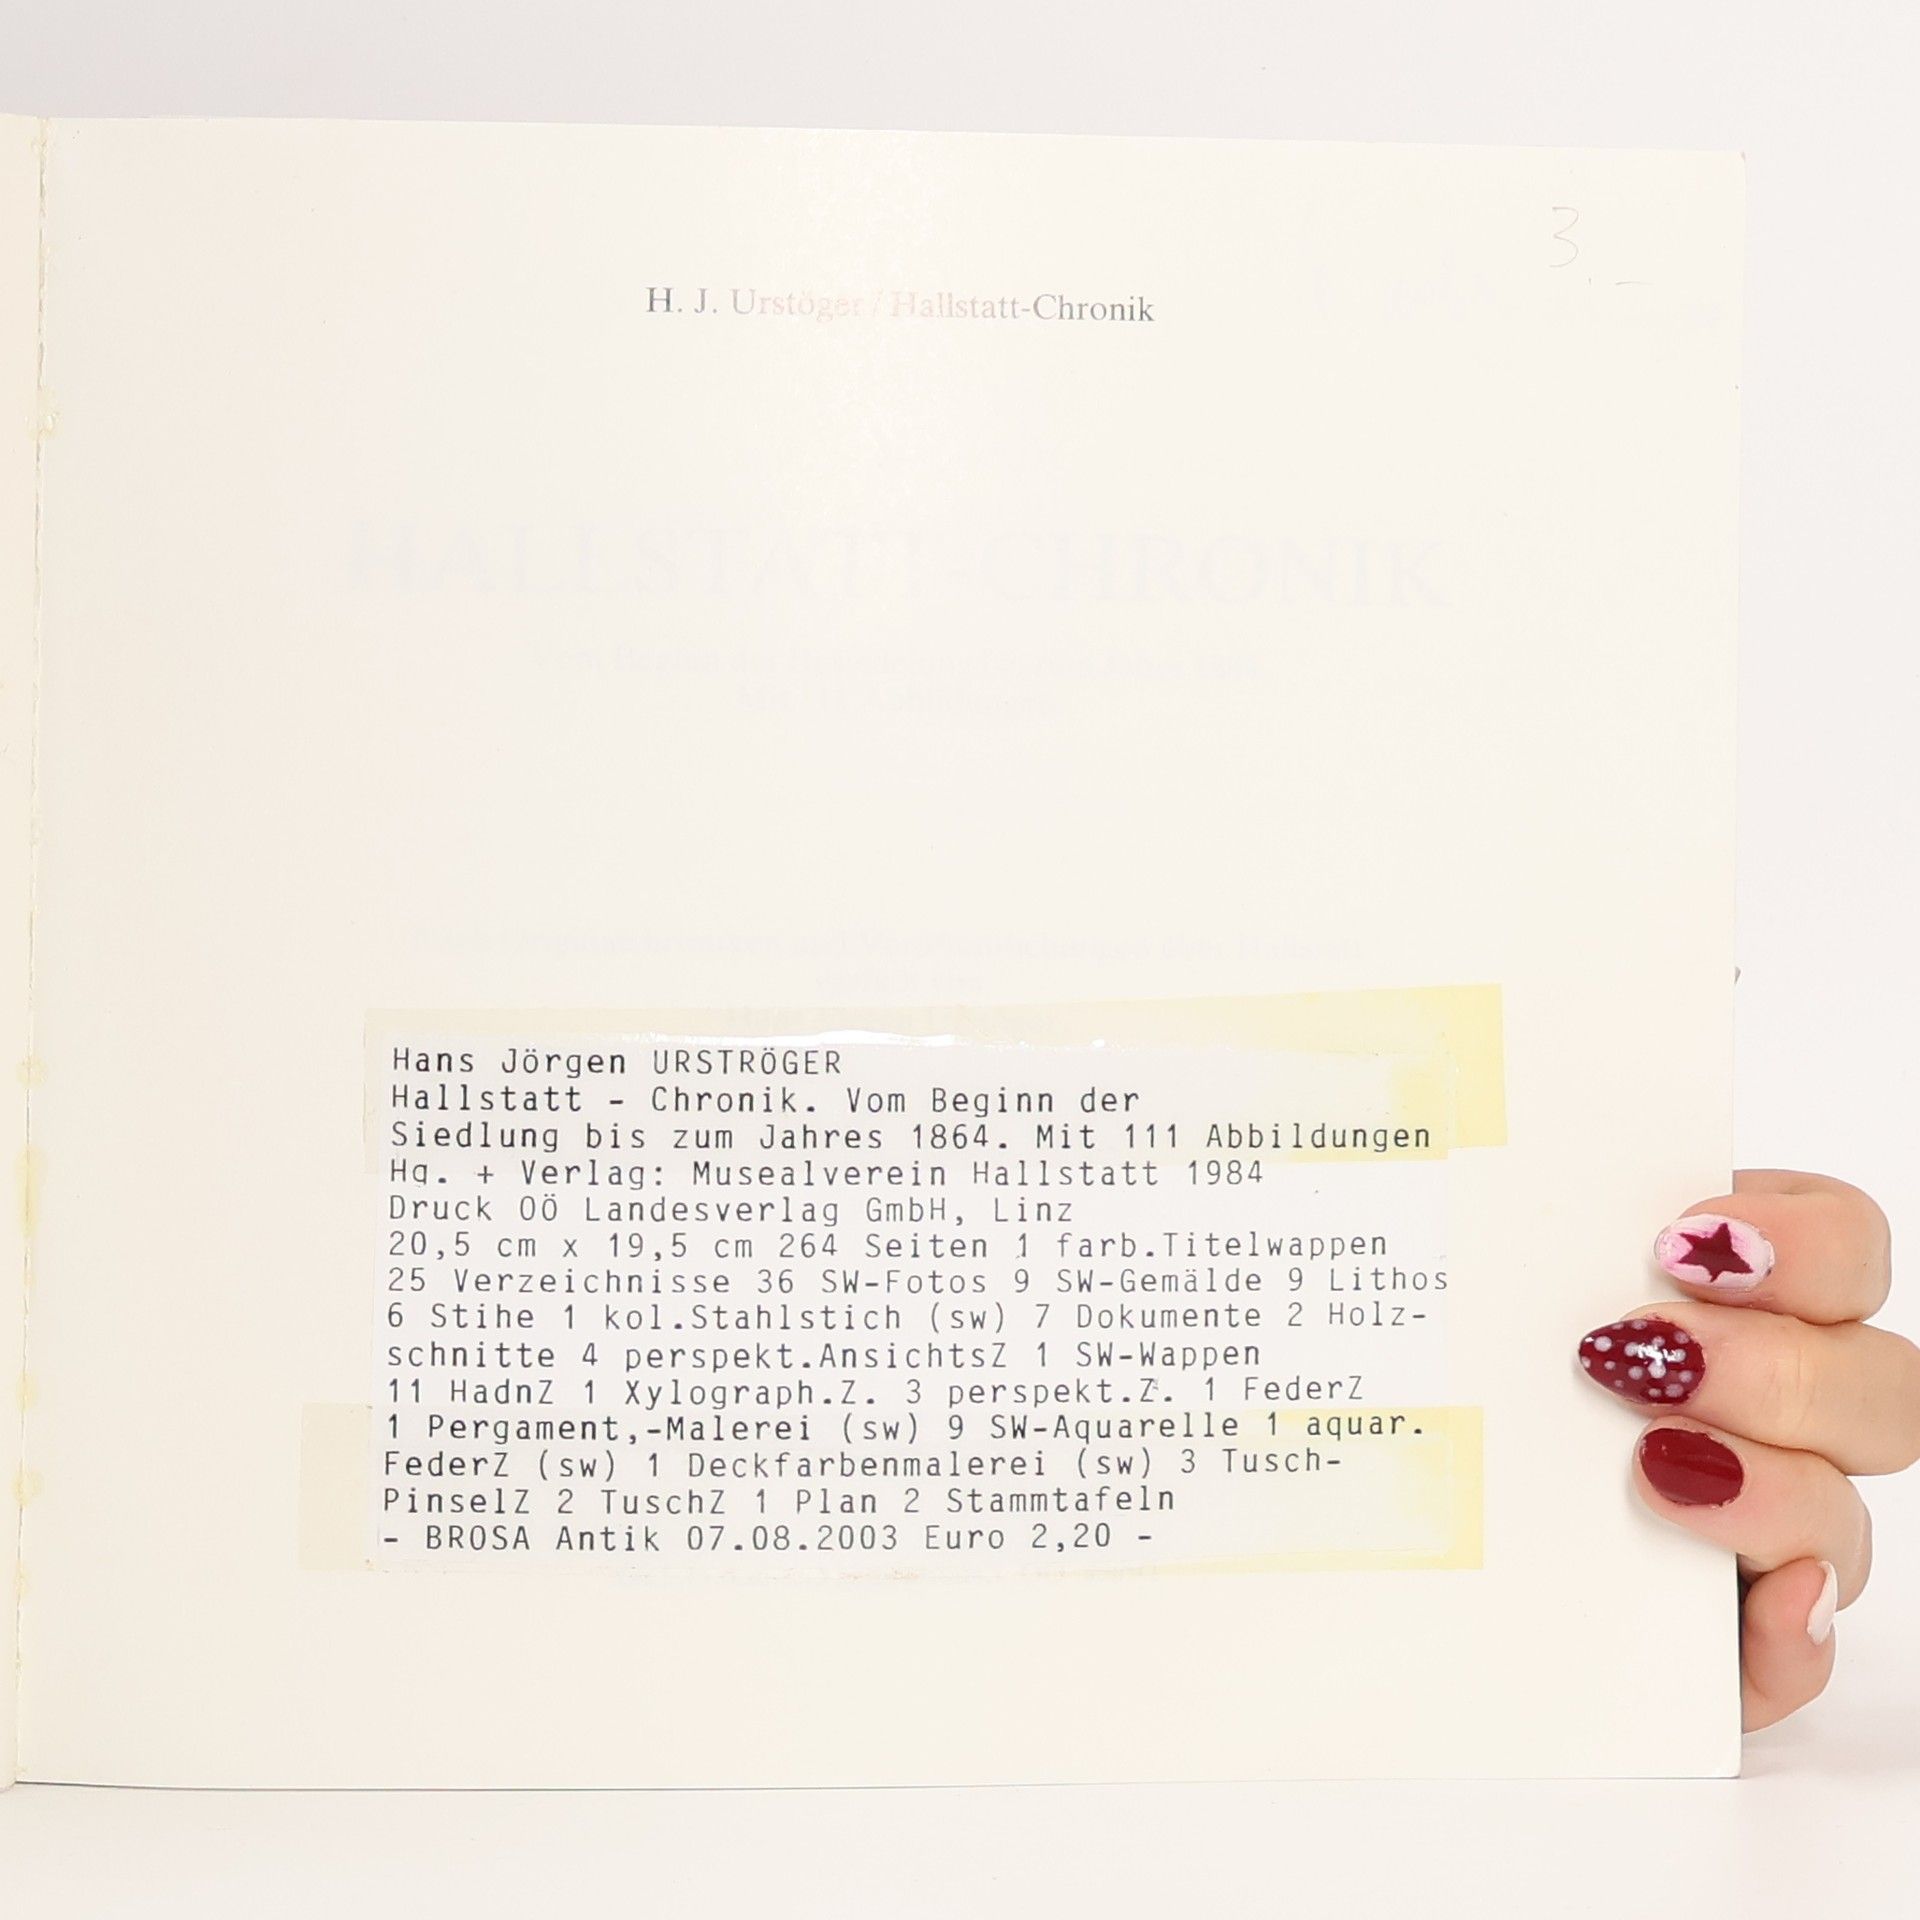 3.–
H. J. Urstöger / Hallstatt-Chronik
HALLSTATT-CHRONIK
Hans Jörgen URSTRÖGER
Hallstatt - Chronik. Vom Beginn der
Siedlung bis zum Jahres 1864. Mit 111 Abbildungen
Hg. + Verlag: Musealverein Hallstatt 1984
Druck OÖ Landesverlag GmbH, Linz
20,5 cm x 19,5 cm 264 Seiten 1 farb.Titelwappen
25 Verzeichnisse 36 SW-Fotos 9 SW-Gemälde 9 Lithos
6 Stihe 1 kol.Stahlstich (sw) 7 Dokumente 2 Holz-
schnitte 4 perspekt.AnsichtsZ 1 SW-Wappen
11 HadnZ 1 Xylograph.Z. 3 perspekt.Z. 1 FederZ
1 Pergament,-Malerei (sw) 9 SW-Aquarelle 1 aquar.
FederZ (sw) 1 Deckfarbenmalerei (sw) 3 Tusch-
PinselZ 2 TuschZ 1 Plan 2 Stammtafeln
- BROSA Antik 07.08.2003 Euro 2,20 -